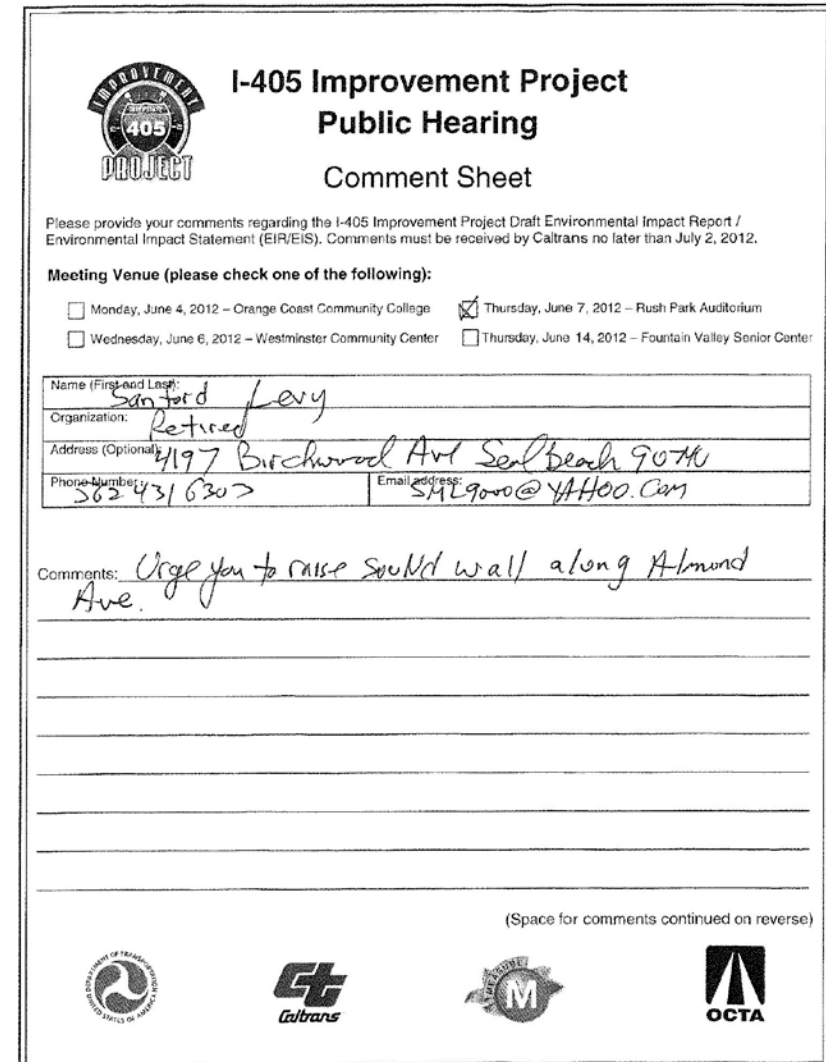 IMPROVEMENT
405
PROJECT
I-405 Improvement Project
Public Hearing
Comment Sheet
Please provide your comments regarding the I-405 Improvement Project Draft Environmental Impact Report /
Environmental Impact Statement (EIR/EIS). Comments must be received by Caltrans no later than July 2, 2012.
Meeting Venue (please check one of the following):
Monday, June 4, 2012 – Orange Coast Community College
Thursday, June 7, 2012 – Rush Park Auditorium
Wednesday, June 6, 2012 – Westminster Community Center
Thursday, June 14, 2012 – Fountain Valley Senior Center
Name (First and Last): Sanford Levy
Organization: Retired
Address (Optional): 4197 Birchwood Ave Seal Beach
Phone Number:
Email address: SML9000@YAHOO.Com
Comments: Urge you to raise SouNd wall along Almond
Ave.
(Space for comments continued on reverse)
DEPARTMENT OF TRANSPORTATION
UNITED STATES OF AMERICA
Ct
Caltrans
MEASURE
M
OCTA